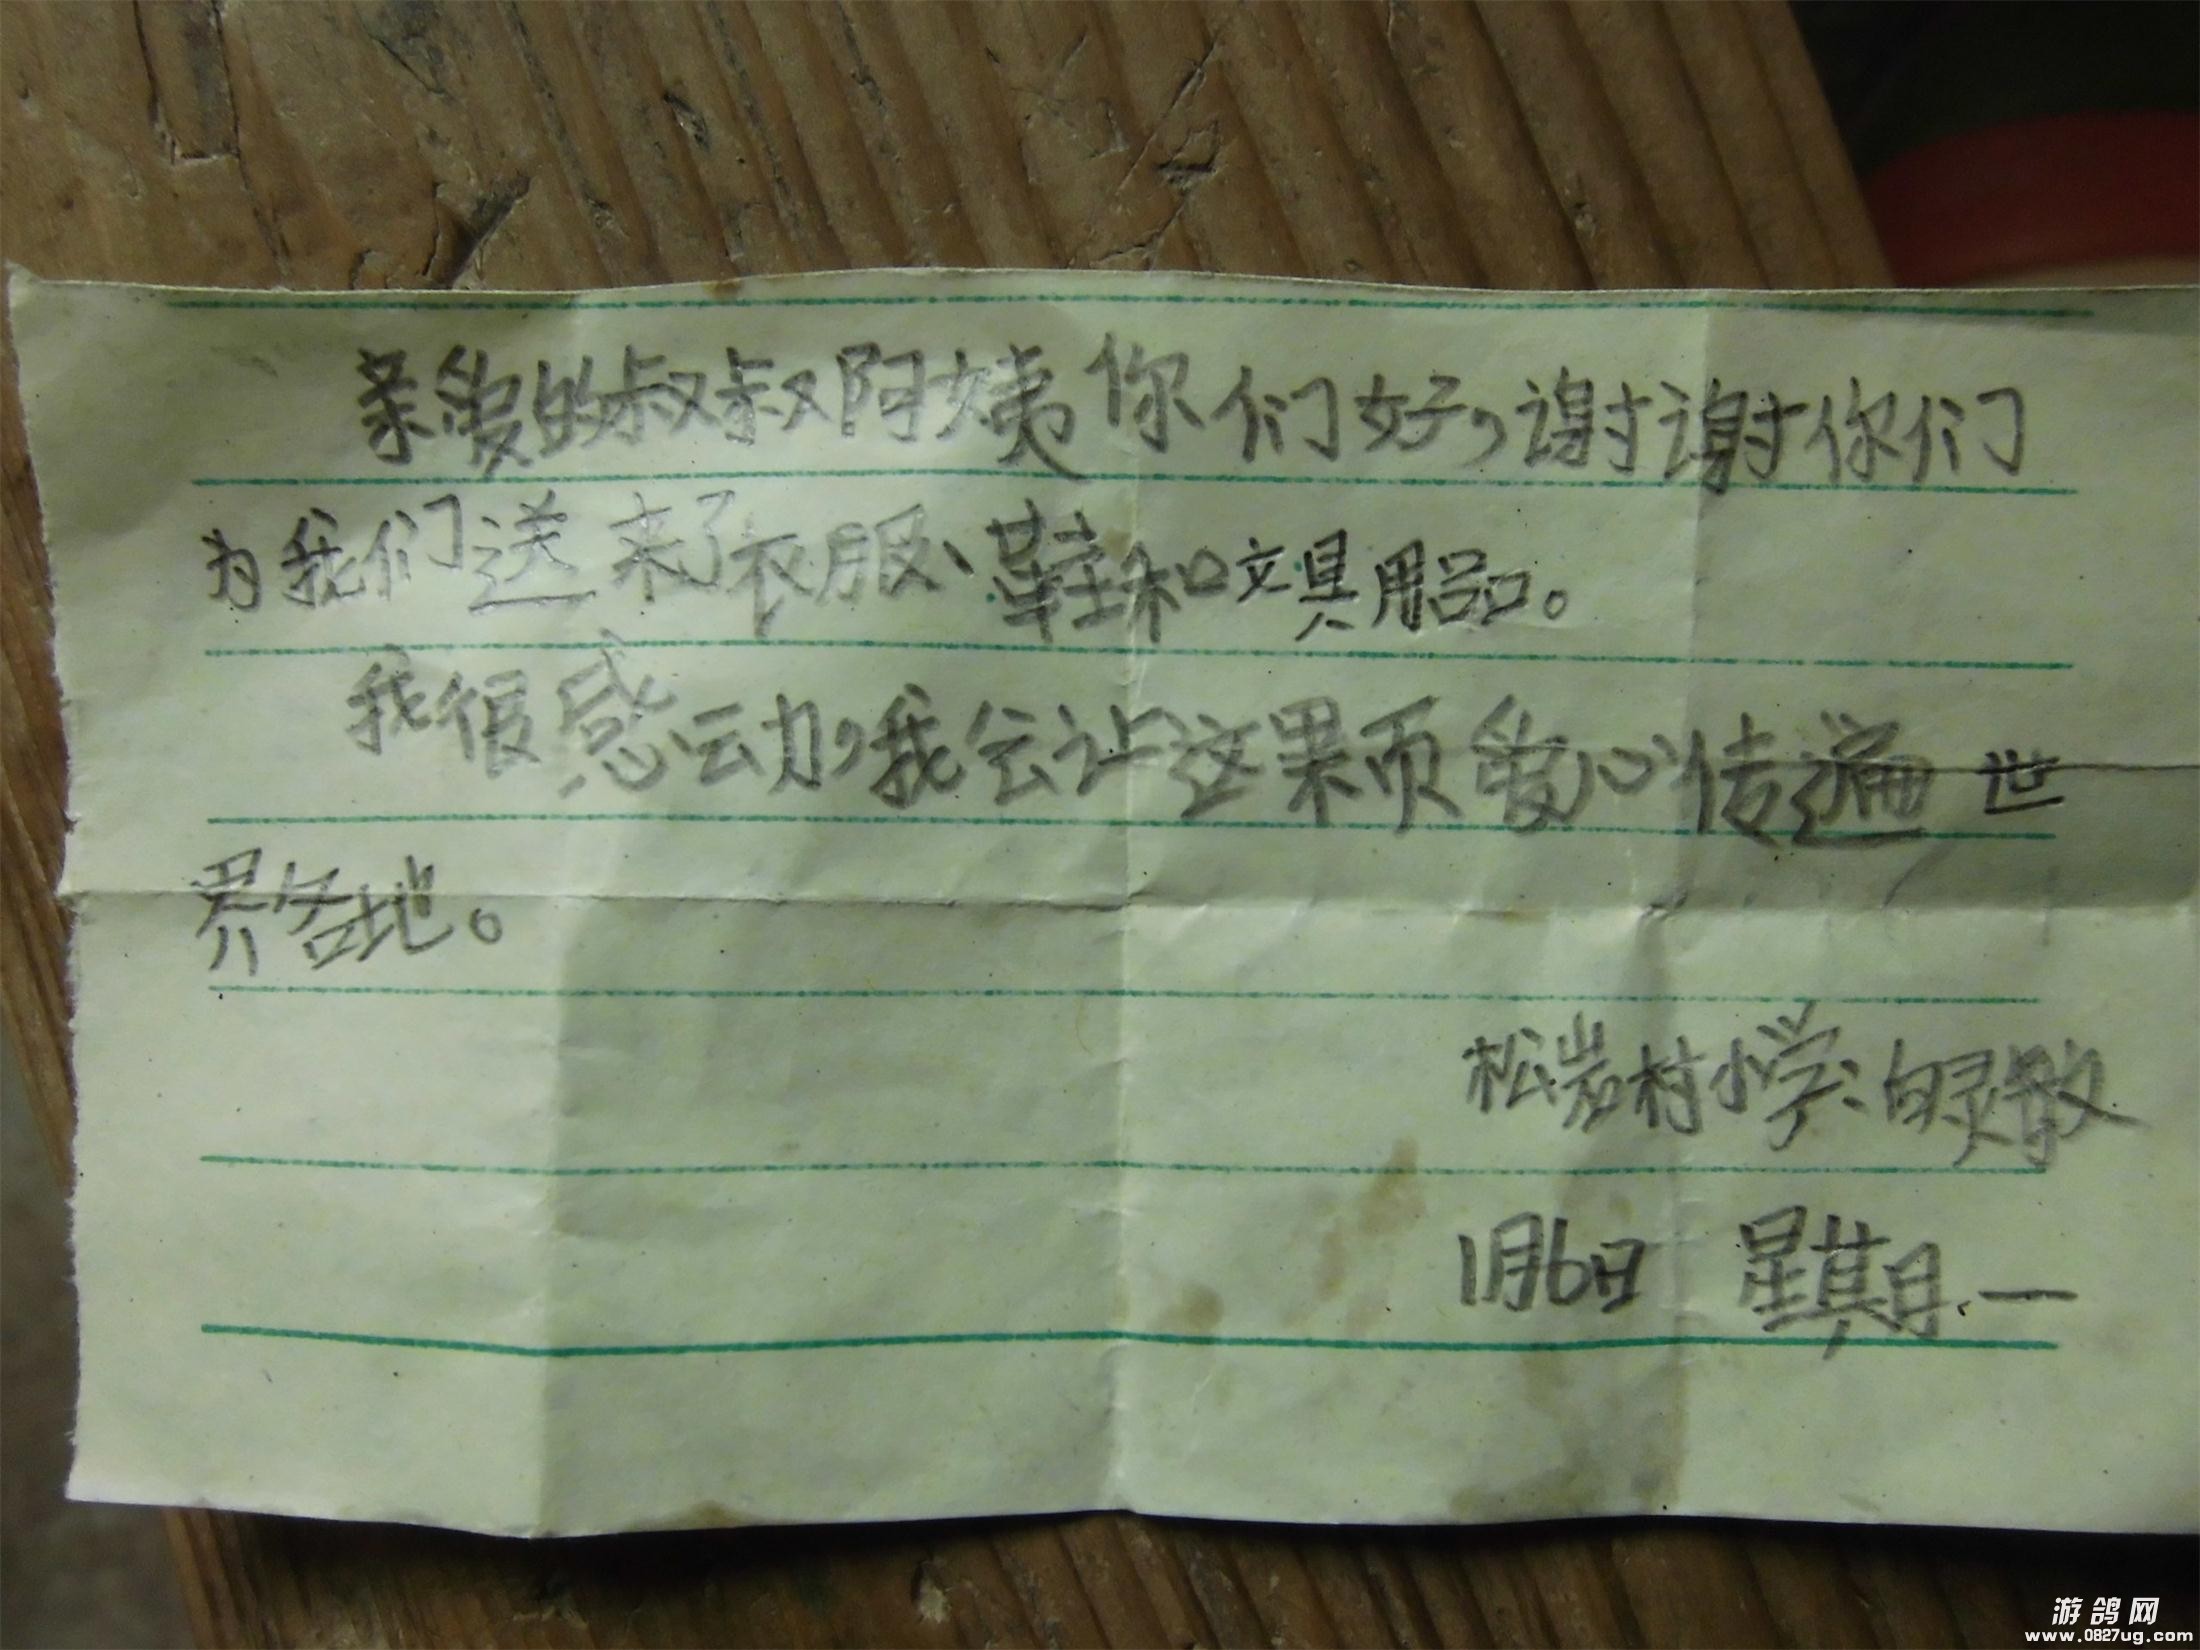 亲爱的叔叔阿姨你们好,谢谢你们
为我们送来了衣服、鞋和文具用品。
我很感动,我会让这颗爱心传遍世
界各地。
松岩村小学:白灵敏
1月6日 星期一
游鸽网
www.0827ug.com